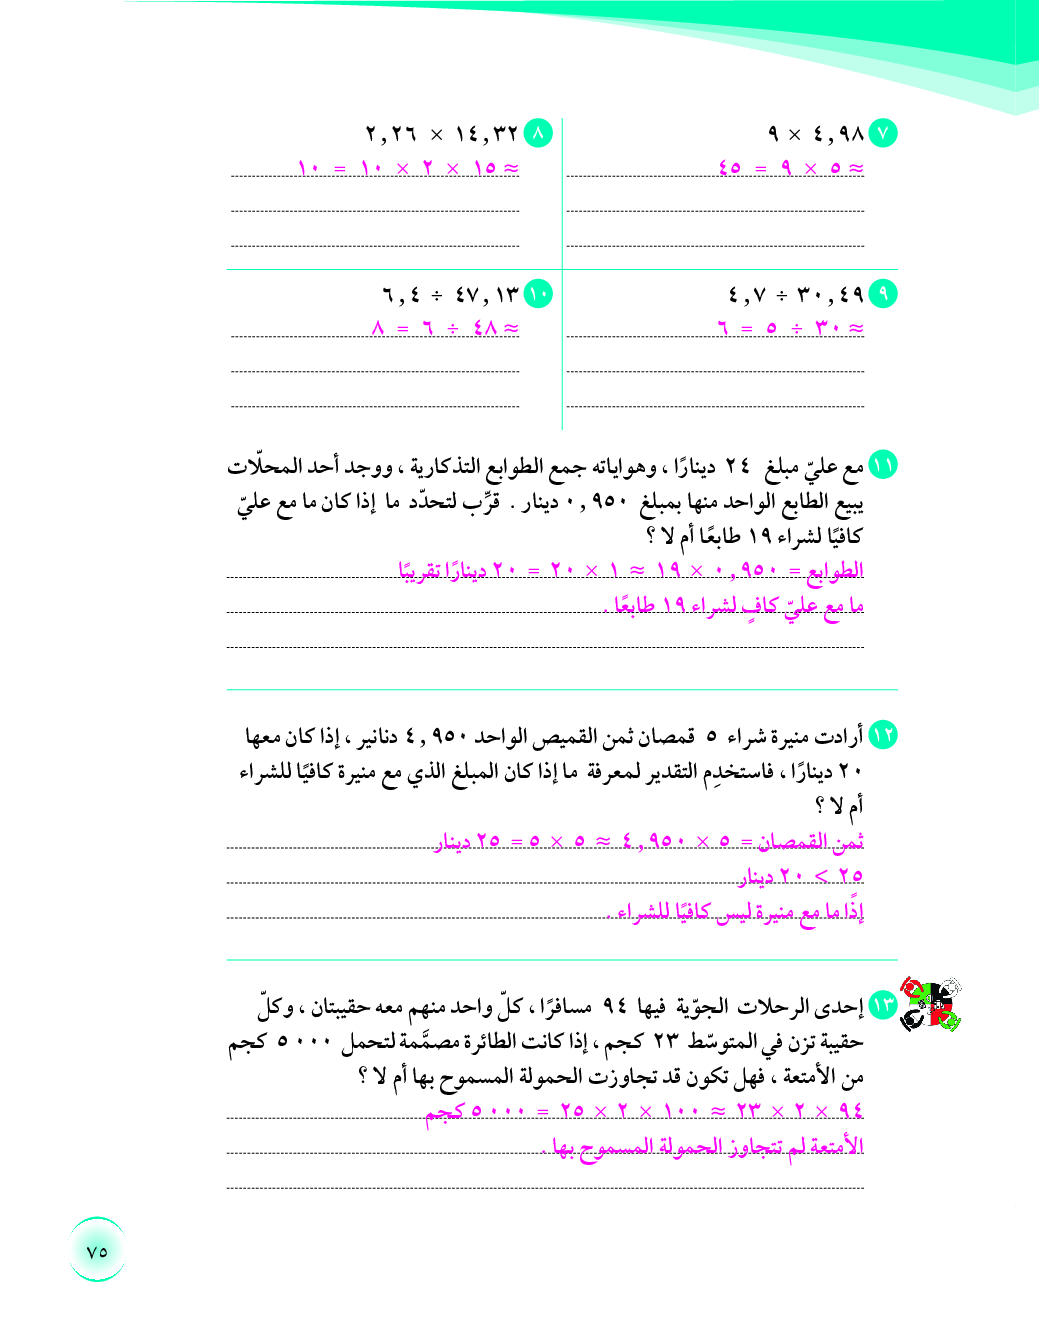 ٧ ٤,٩٨ × ٩
≈ ٥ × ٩ = ٤٥
٨ ١٤,٣٢ × ٢,٢٦
≈ ١٥ × ٢ × ١٠ = ١٠
٩ ٣٠,٤٩ ÷ ٤,٧
≈ ٣٠ ÷ ٥ = ٦
١٠ ٤٧,١٣ ÷ ٦,٤
≈ ٤٨ ÷ ٦ = ٨
١١ مع عليّ مبلغ ٢٤ دينارًا ، وهواياته جمع الطوابع التذكارية ، ووجد أحد المحلّات
يبيع الطابع الواحد منها بمبلغ ٠,٩٥٠ دينار . قرِّب لتحدّد ما إذا كان ما مع عليّ
كافيًا لشراء ١٩ طابعًا أم لا ؟
الطوابع = ٠,٩٥٠ × ١٩ ≈ ١ × ٢٠ = ٢٠ دينارًا تقريبًا
ما مع عليّ كافٍ لشراء ١٩ طابعًا .
١٢ أرادت منيرة شراء ٥ قمصان ثمن القميص الواحد ٤,٩٥٠ دنانير ، إذا كان معها
٢٠ دينارًا ، فاستخدِم التقدير لمعرفة ما إذا كان المبلغ الذي مع منيرة كافيًا للشراء
أم لا ؟
ثمن القمصان = ٥ × ٤,٩٥٠ ≈ ٥ × ٥ = ٢٥ دينار
٢٥ > ٢٠ دينار
إذًا ما مع منيرة ليس كافيًا للشراء .
١٣ إحدى الرحلات الجوّية فيها ٩٤ مسافرًا ، كلّ واحد منهم معه حقيبتان ، وكلّ
حقيبة تزن في المتوسّط ٢٣ كجم ، إذا كانت الطائرة مصمَّمة لتحمل ٥٠٠٠ كجم
من الأمتعة ، فهل تكون قد تجاوزت الحمولة المسموح بها أم لا ؟
٩٤ × ٢ × ٢٣ ≈ ١٠٠ × ٢ × ٢٥ = ٥٠٠٠ كجم
الأمتعة لم تتجاوز الحمولة المسموح بها .
٧٥